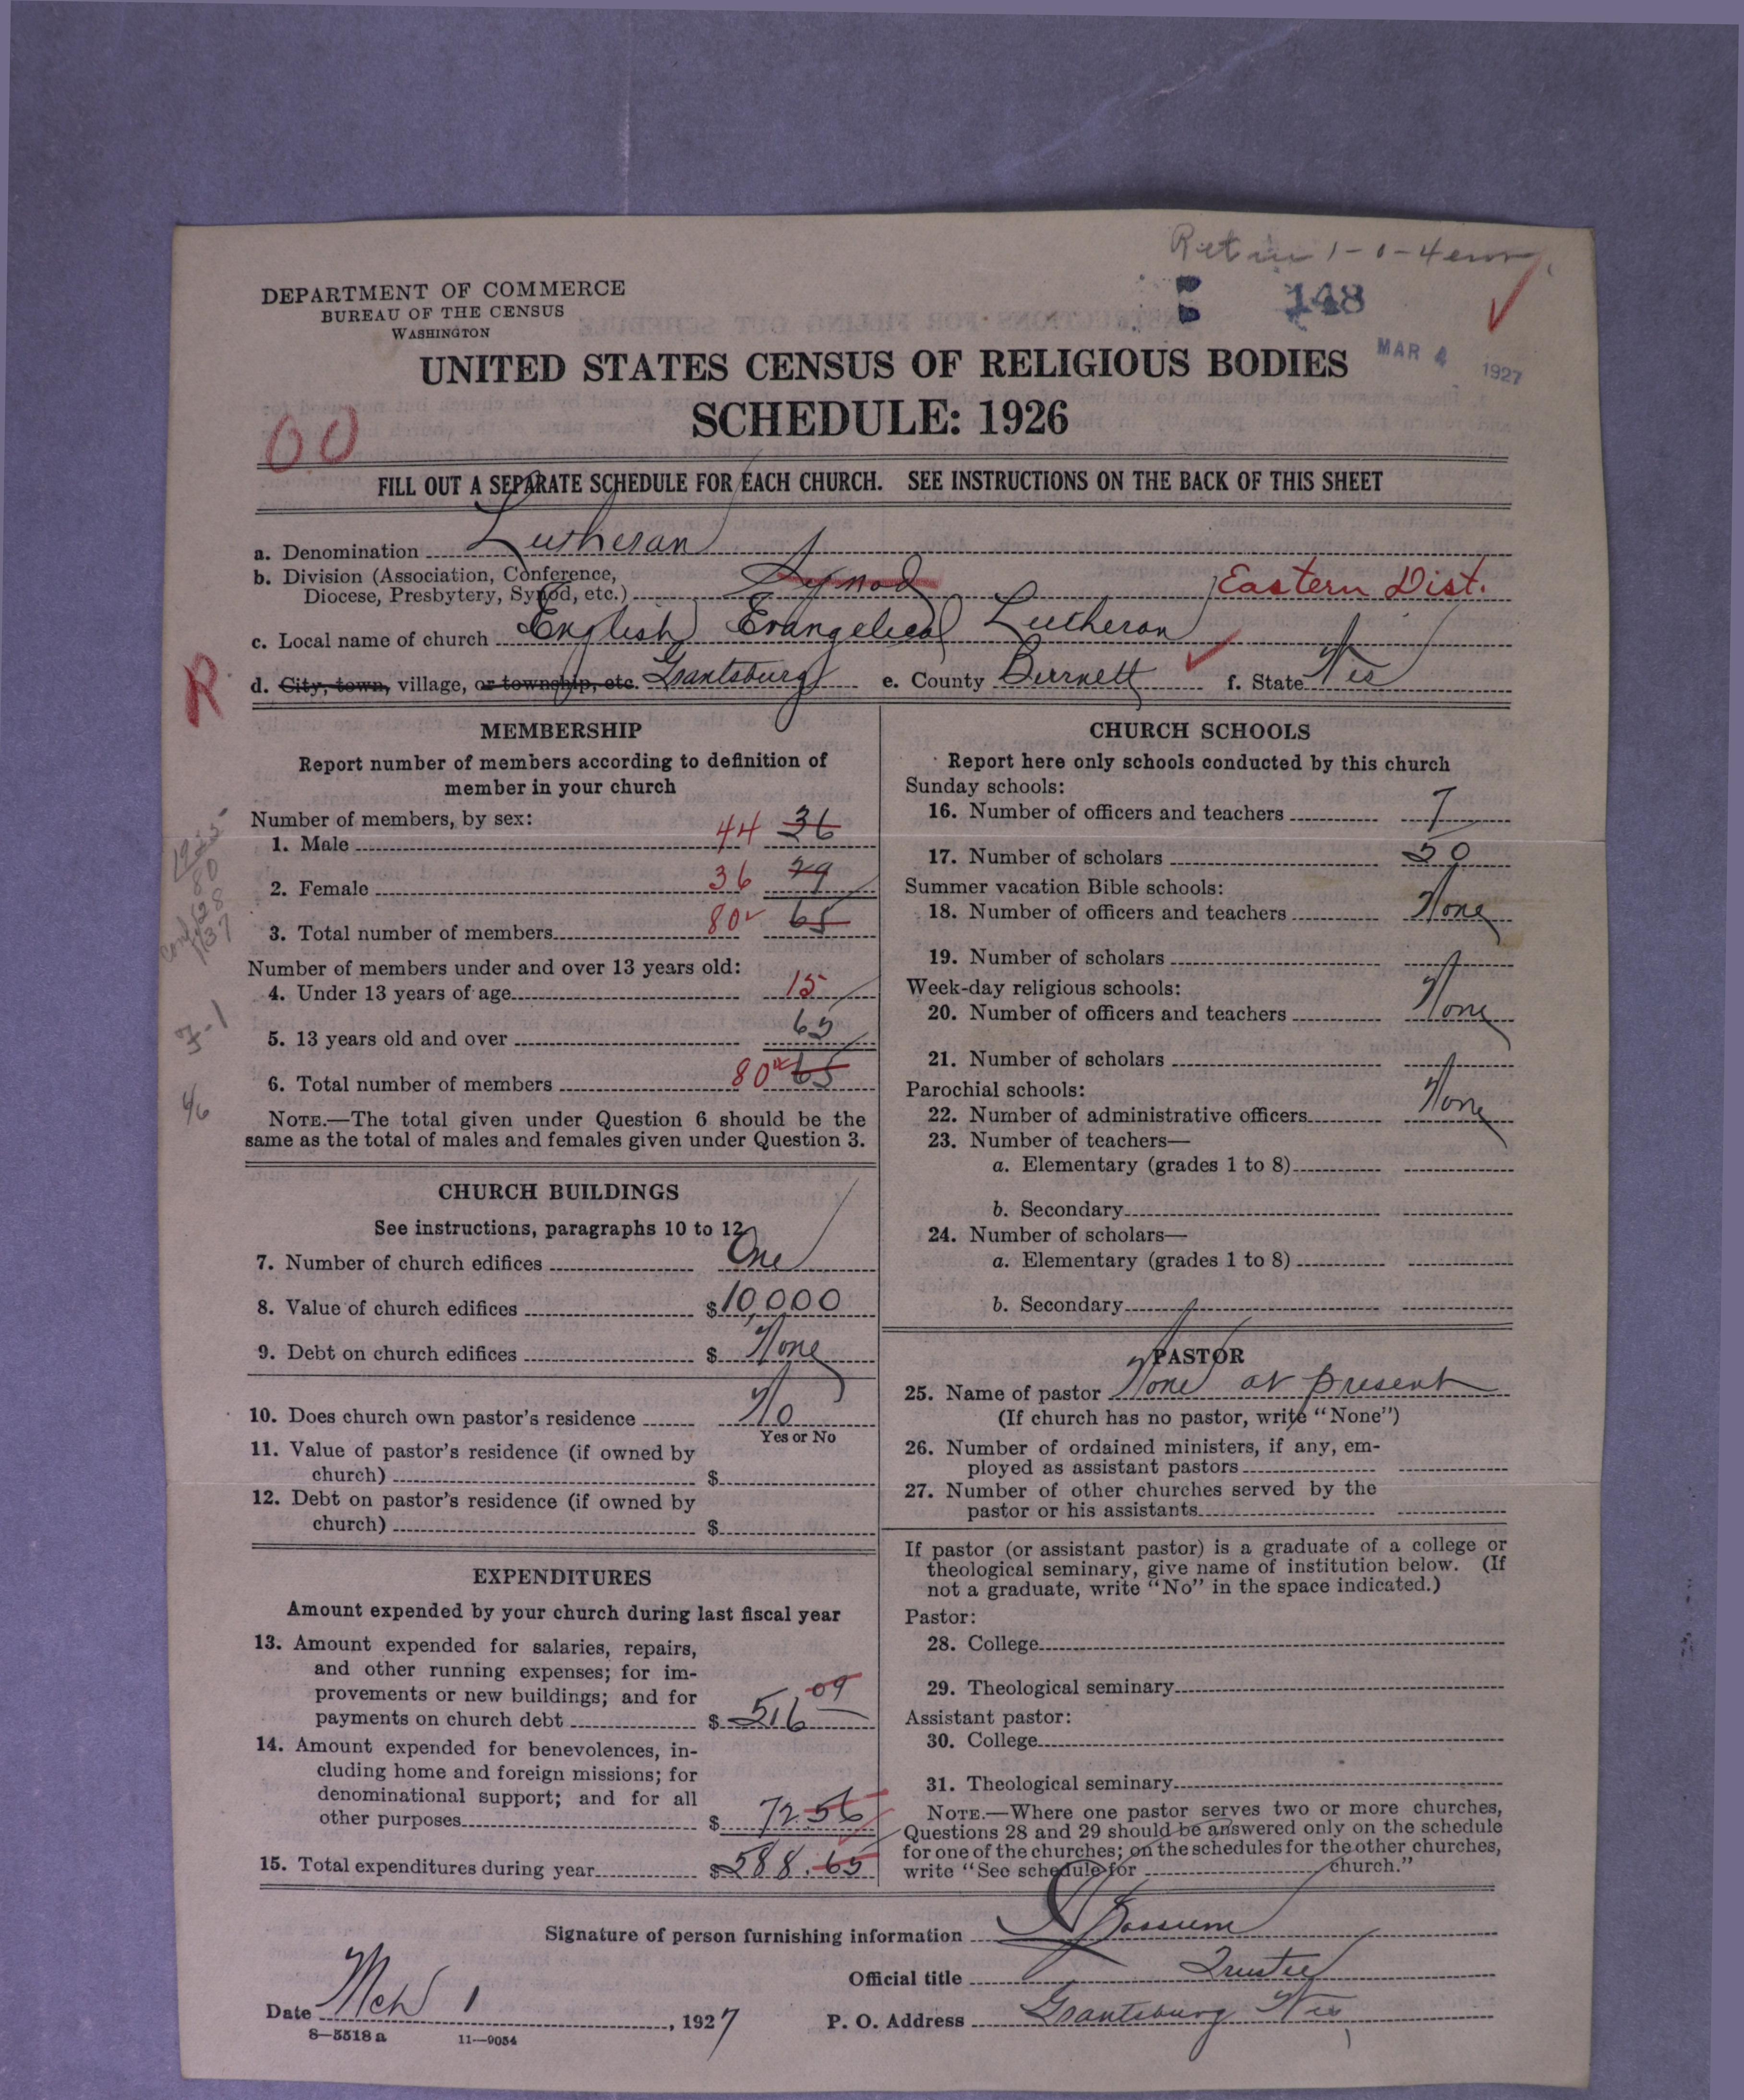 Ret in 1-0-4
148
MAR 4 1927
DEPARTMENT OF COMMERCE
BUREAU OF THE CENSUS
WASHINGTON
UNITED STATES CENSUS OF RELIGIOUS BODIES
SCHEDULE: 1926
00
FILL OUT A SEPARATE SCHEDULE FOR EACH CHURCH. SEE INSTRUCTIONS ON THE BACK OF THIS SHEET
a. Denomination Lutheran
b. Division (Association, Conference,
Diocese, Presbytery, Synod, etc.) Synod Eastern Dist.
c. Local name of church English Evangelical Lutheran
R
d. City, town, village, or township, etc. Grantsburg e. County Burnett f. State Wis
MEMBERSHIP
Report number of members according to definition of
member in your church
Number of members, by sex:
1. Male 44 36
2. Female 36 29
3. Total number of members 80 65
Number of members under and over 13 years old:
4. Under 13 years of age 15
5. 13 years old and over 65
6. Total number of members 80 65
NOTE.—The total given under Question 6 should be the
same as the total of males and females given under Question 3.
CHURCH BUILDINGS
See instructions, paragraphs 10 to 12
7. Number of church edifices One
8. Value of church edifices $10,000
9. Debt on church edifices $ None
10. Does church own pastor's residence No
Yes or No
11. Value of pastor's residence (if owned by
church) $
12. Debt on pastor's residence (if owned by
church) $
EXPENDITURES
Amount expended by your church during last fiscal year
13. Amount expended for salaries, repairs,
and other running expenses; for im-
provements or new buildings; and for
payments on church debt $ 516 09
14. Amount expended for benevolences, in-
cluding home and foreign missions; for
denominational support; and for all
other purposes $ 72.56
15. Total expenditures during year $588.65
CHURCH SCHOOLS
Report here only schools conducted by this church
Sunday schools:
16. Number of officers and teachers 7
17. Number of scholars 50
Summer vacation Bible schools:
18. Number of officers and teachers None
19. Number of scholars
Week-day religious schools:
20. Number of officers and teachers None
21. Number of scholars
Parochial schools:
22. Number of administrative officers None
23. Number of teachers—
a. Elementary (grades 1 to 8)
b. Secondary
24. Number of scholars—
a. Elementary (grades 1 to 8)
b. Secondary
PASTOR
25. Name of pastor None at present
(If church has no pastor, write "None")
26. Number of ordained ministers, if any, em-
ployed as assistant pastors
27. Number of other churches served by the
pastor or his assistants
If pastor (or assistant pastor) is a graduate of a college or
theological seminary, give name of institution below. (If
not a graduate, write "No" in the space indicated.)
Pastor:
28. College
29. Theological seminary
Assistant pastor:
30. College
31. Theological seminary
NOTE.—Where one pastor serves two or more churches,
Questions 28 and 29 should be answered only on the schedule
for one of the churches; on the schedules for the other churches,
write "See schedule for church."
Signature of person furnishing information
Official title Trustee
Date Mch 1, 1927 P. O. Address Grantsburg Wis
8—5518 a 11—9054